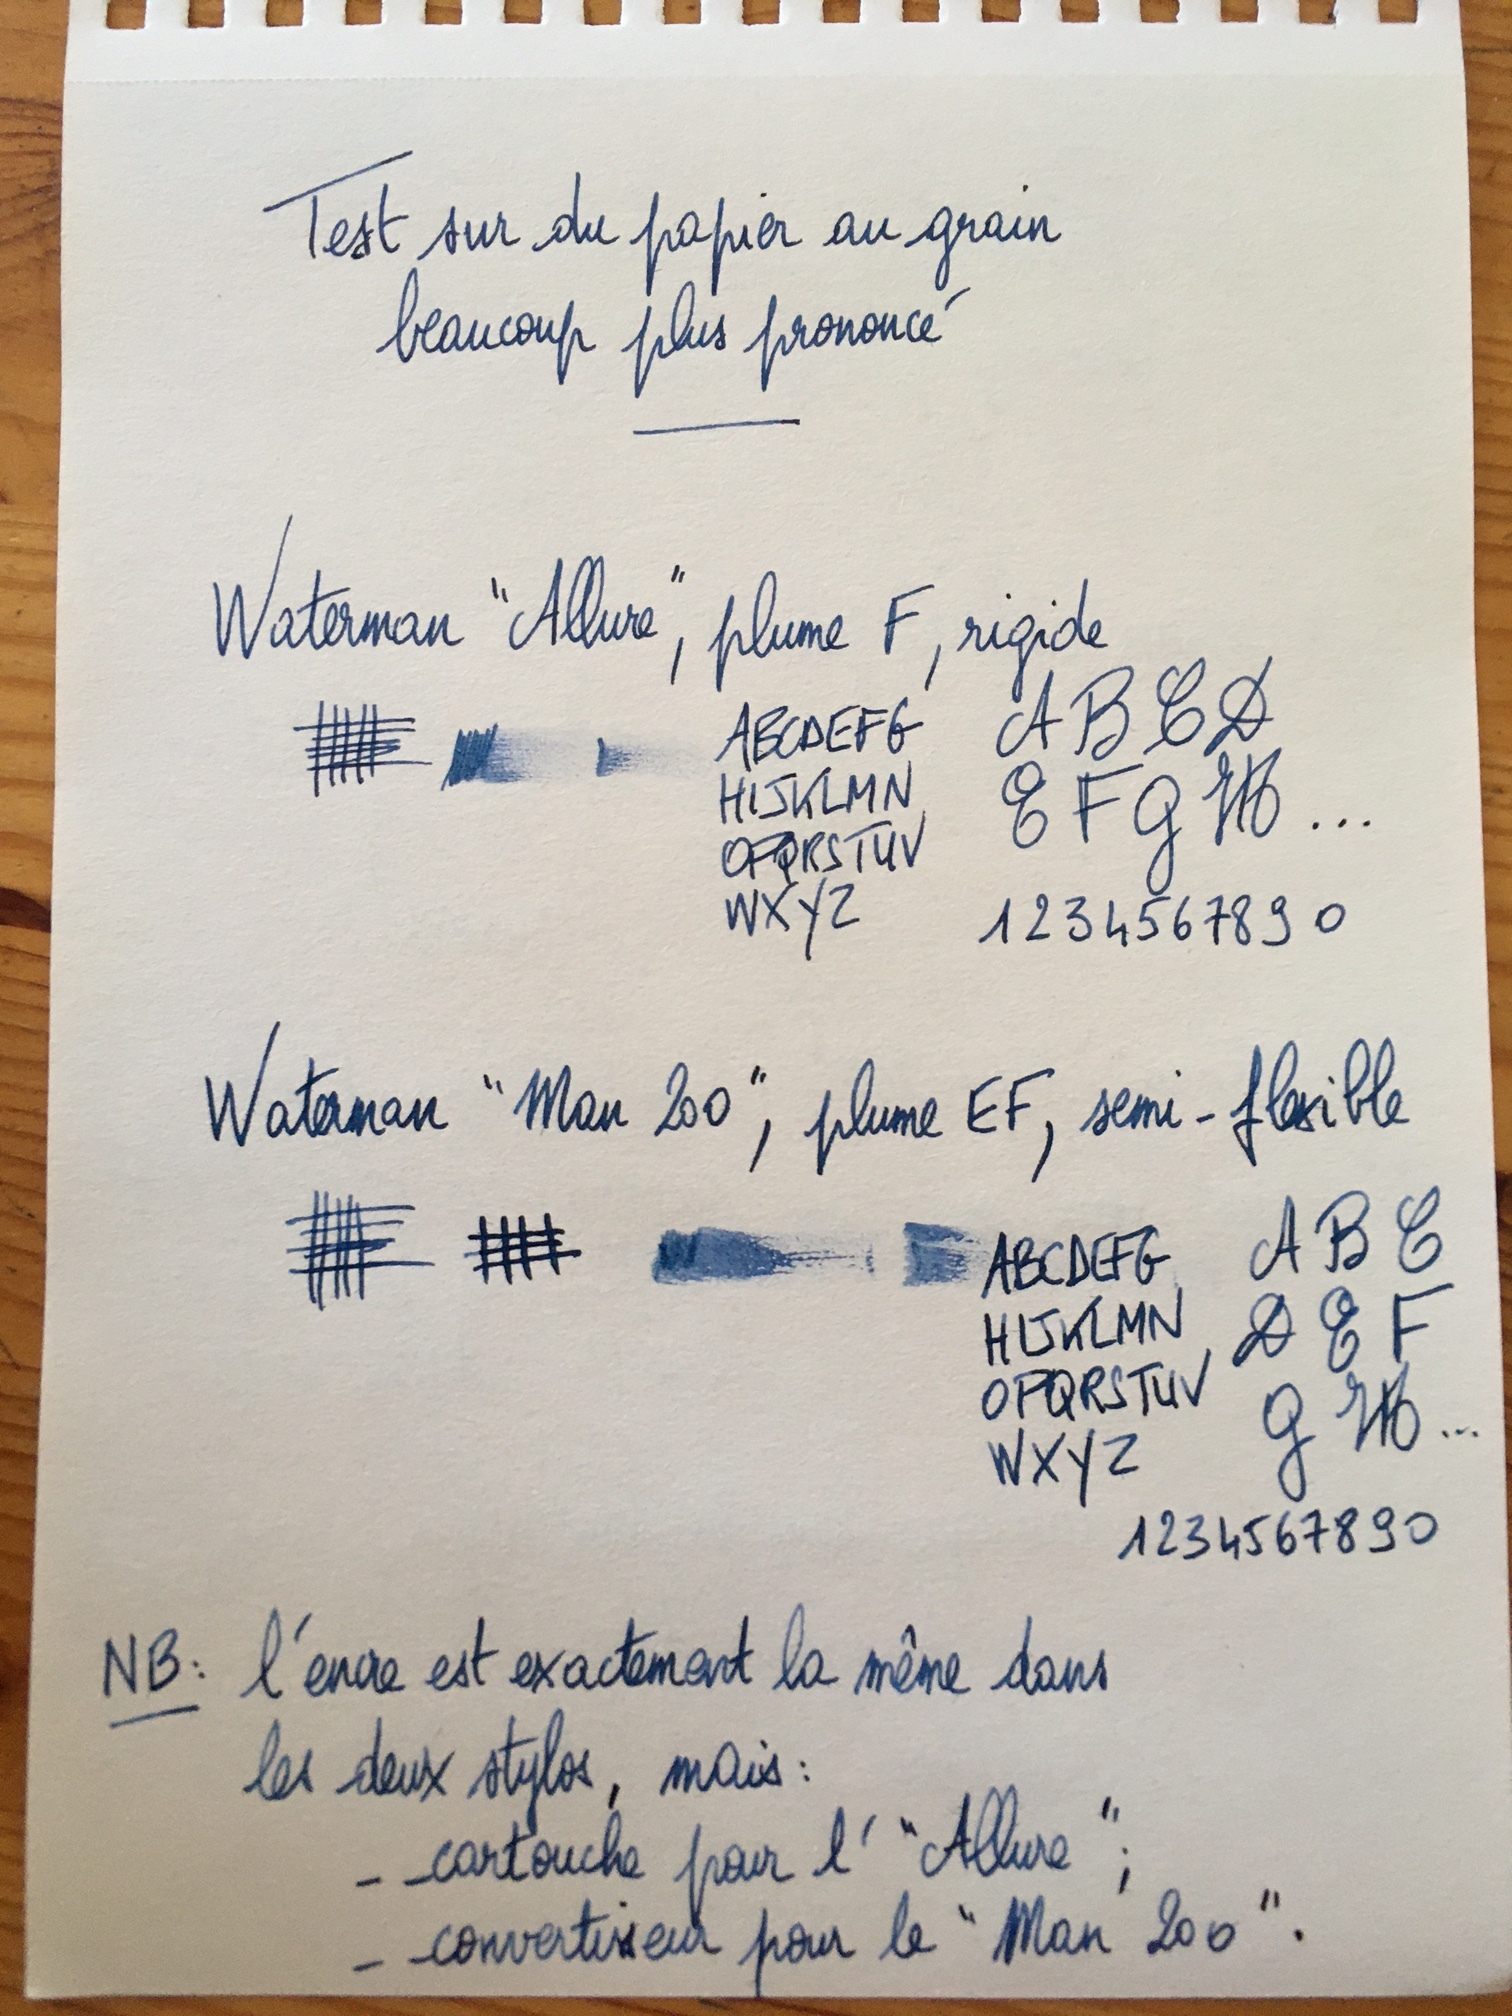 Test sur du papier au grain
beaucoup plus prononcé
Waterman "Allure", plume F, rigide
ABCDEFG
HIJKLMN
OPQRSTUV
WXYZ
A B C D
E F G H ...
1234567890
Waterman "Man 200", plume EF, semi-flexible
ABCDEFG
HIJKLMN
OPQRSTUV
WXYZ
A B C
D E F
G H ...
1234567890
NB: l'encre est exactement la même dans
les deux stylos, mais:
- cartouche pour l'"Allure";
- convertisseur pour le "Man 200".